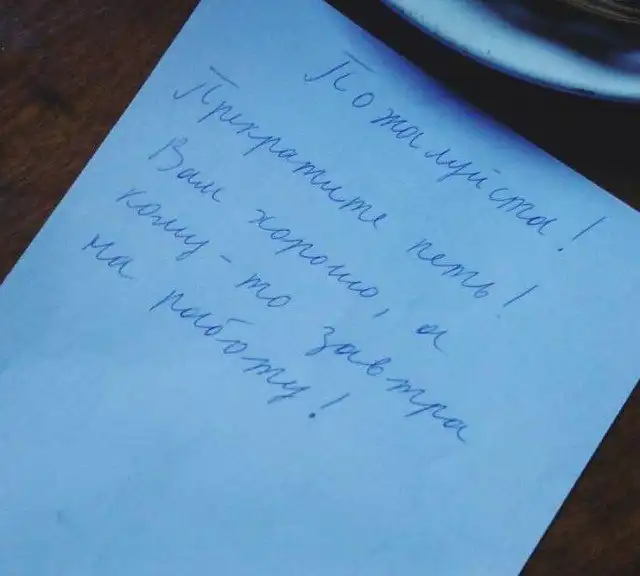 Пожалуйста!
Прекратите петь!
Вам хорошо, а
кому-то завтра
на работу!